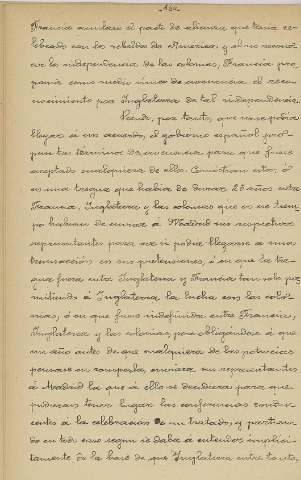 -104-
Francia anulara el pacto de alianza que tenía ce-
lebrado con los rebeldes de America, y el no recono-
cer la independencia de las colonias, Francia pro-
ponía como medio único de avenencia el reco-
nocimiento por Inglaterra de tal independencia.
Viendo, por tanto, que no se podía
llegar á un acuerdo, el gobierno español pro-
puso tres términos de avenencia para que fuese
aceptado cualquiera de ellos. Consistían estos, ó
en una tregua que habría de durar 25 años entre
Francia, Inglaterra y las colonias que en ese tiem-
po habían de enviar á Madrid sus respectivos
representantes para ver si podía llegarse á una
transacción en sus pretensiones, ó en que la tre-
gua fuera entre Inglaterra y Francia tan solo per
mitiendo á Inglaterra, la lucha con las colo-
nias, ó en que fuese indefinida entre Francia,
Inglaterra y las colonias, pero obligándose á que
un año antes de que cualquiera de las potencias
pensase en romperla, enviara sus representantes
á Madrid la que á ello se decidiera para que
pudieran tener lugar las conferencias condu-
centes á la celebración de un tratado, y partien-
do en todo caso segun se daba á entender implici-
tamente de la base de que Inglaterra entre tanto,